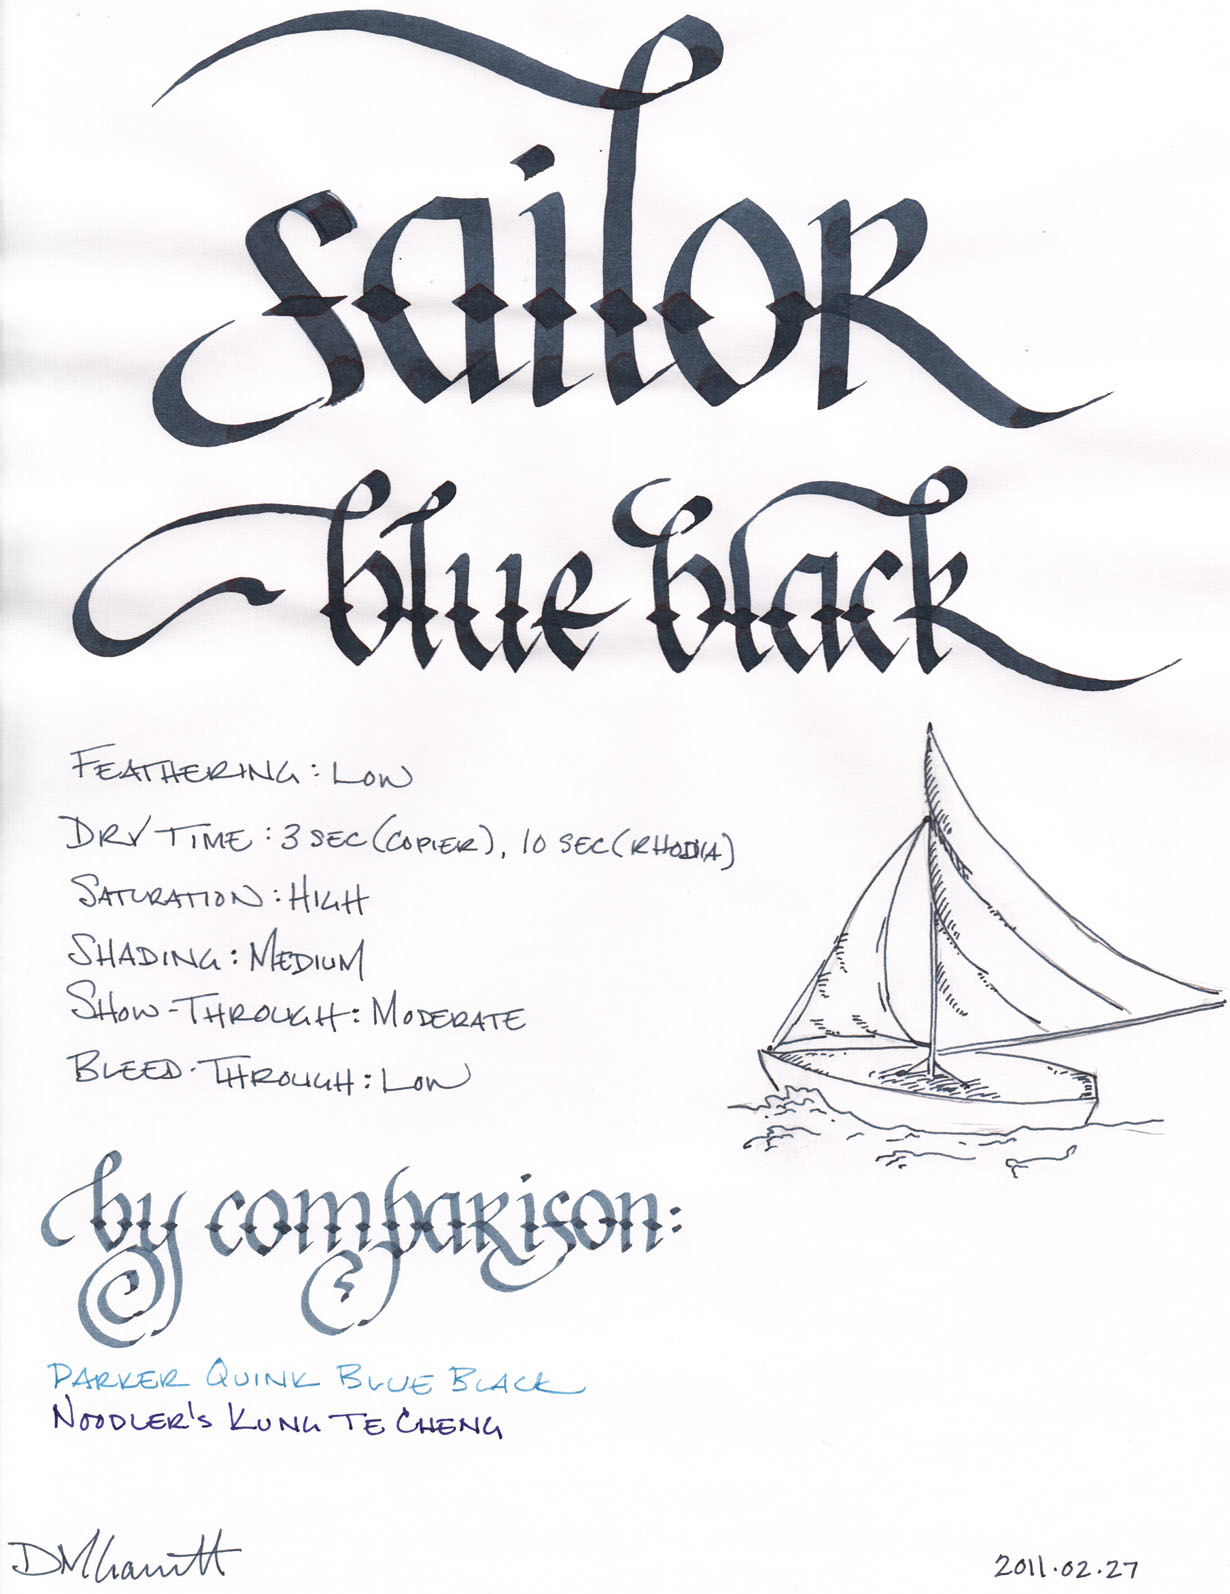 sailor
blue black
FEATHERING: LOW
DRY TIME: 3 SEC (COPIER), 10 SEC (RHODIA)
SATURATION: HIGH
SHADING: MEDIUM
SHOW-THROUGH: MODERATE
BLEED-THROUGH: LOW
by comparison:
PARKER QUINK BLUE BLACK
NOODLER'S KUNG TE CHENG
2011.02.27